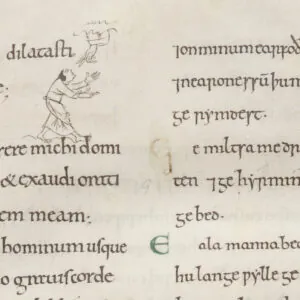 dilatasti
e:
rere michi domi
& exaudi orati
em meam:
hominum usque
o grauiscorde
⁊onminum earfoð
⁊nearonessū þu m
ge rymdest.
e miltsa me dri
ten ⁊ge hyr min
ge bed.
E ala manna bea
hu lange ƿylle ge